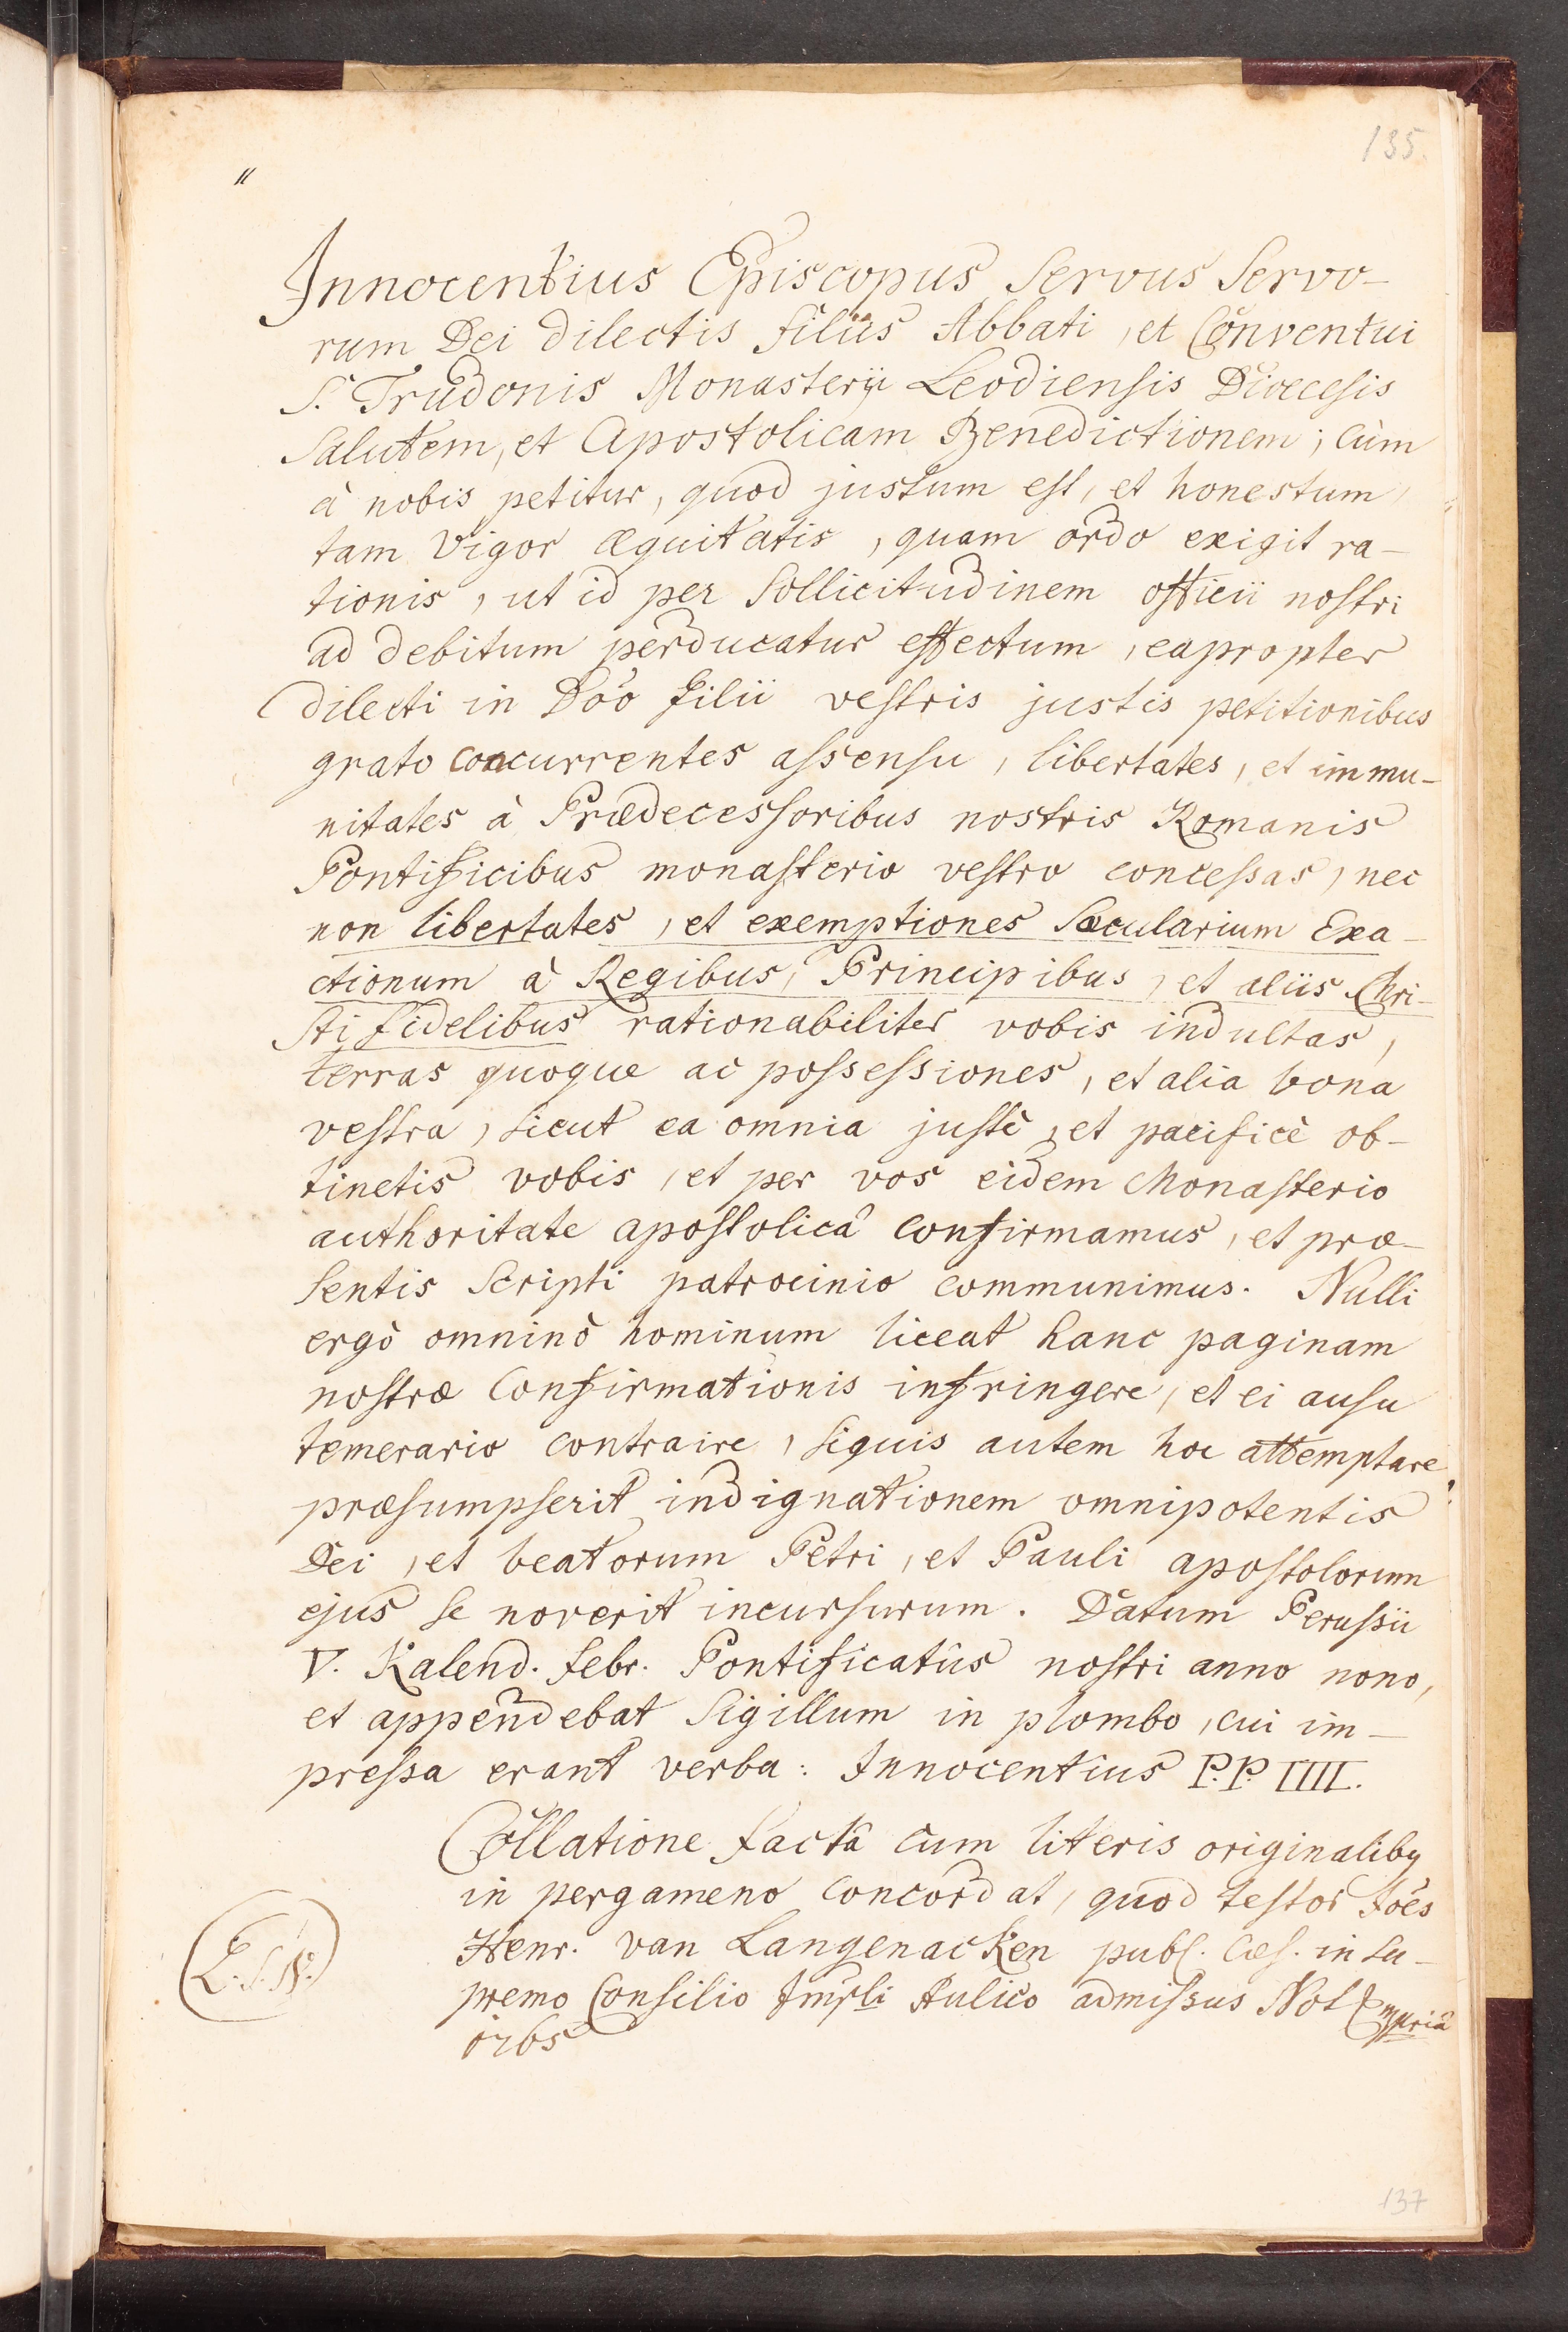 135
"
Innocentius Episcopus Servus Servo-
rum Dei dilectis filiis Abbati, et Conventui
S. Trudonis Monasterii Leodiensis Diœcesis
Salutem, et Apostolicam Benedictionem; Cùm
à nobis petitur, quod justum est, et honestum,
tam vigor æquitatis, quam ordo exigit ra-
tionis, ut id per sollicitudinem officii nostri
ad debitum perducatur effectum, eapropter
dilecti in Dño filii vestris justis petitionibus
grato concurrentes assensu, libertates, et immu-
nitates à Prædecessoribus nostris Romanis
Pontificibus monasterio vestro concessas, nec
non libertates, et exemptiones Sæcularium Exa-
ctionum à Regibus, Principibus, et aliis Chri-
sti fidelibus rationabiliter vobis indultas,
terras quoque ac possessiones, et alia bona
vestra, sicut ea omnia justè, et pacificè ob-
tinetis vobis, et per vos eidem Monasterio
authoritate apostolicâ confirmamus, et præ-
sentis scripti patrocinio communimus. Nulli
ergò omninò hominum liceat hanc paginam
nostræ Confirmationis infringere, et ei ausu
temerario contraire, siquis autem hoc attemptare
præsumpserit indignationem omnipotentis
Dei, et beatorum Petri, et Pauli apostolorum
ejus se noverit incursurum. Datum Perusii
V. Kalend. febr. Pontificatûs nostri anno nono,
et appendebat Sigillum in plombo, cui im-
pressa erant verba: Innocentius P.P. IIII.
Collatione factâ cum literis originalibq
in pergameno concordat, quod testor Joës
Henr. van Langenacken publ. Cæs. in su-
premo Consilio Impli Aulico admissus Not
1765
L.S.N.
137